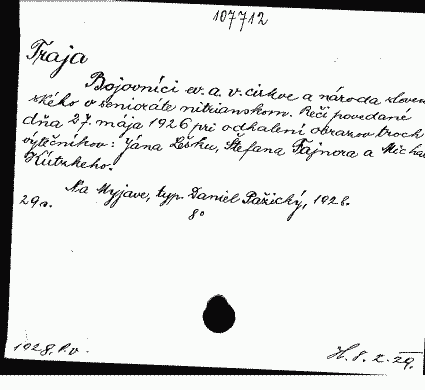 107712
Traja
Bojovníci ev. a. v. cirkve a národa sloven
ského v senioráte nitrianskom. Reči povedané
dňa 27. mája 1926 pri odhalení obrazov troch
výtečníkov: Jána Lešku, Štefana Fajnora a Micha
Kútzkeho.
Na Myjave, typ. Daniel Pažický, 1926.
29 s. 8°
1928. P. v.
H. 8. 2. 29.